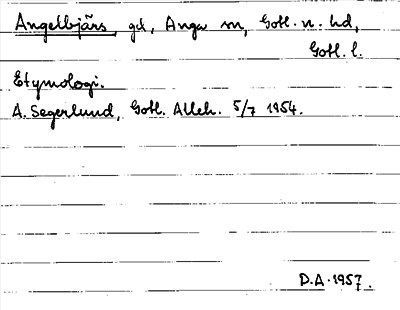 Angelbjärs, gd, Anga sn, Gotl. n. hd,
Gotl. l.
Etymologi.
A. Segerlund, Gotl. Alleh. 5/7 1954.
D.A. 1957.